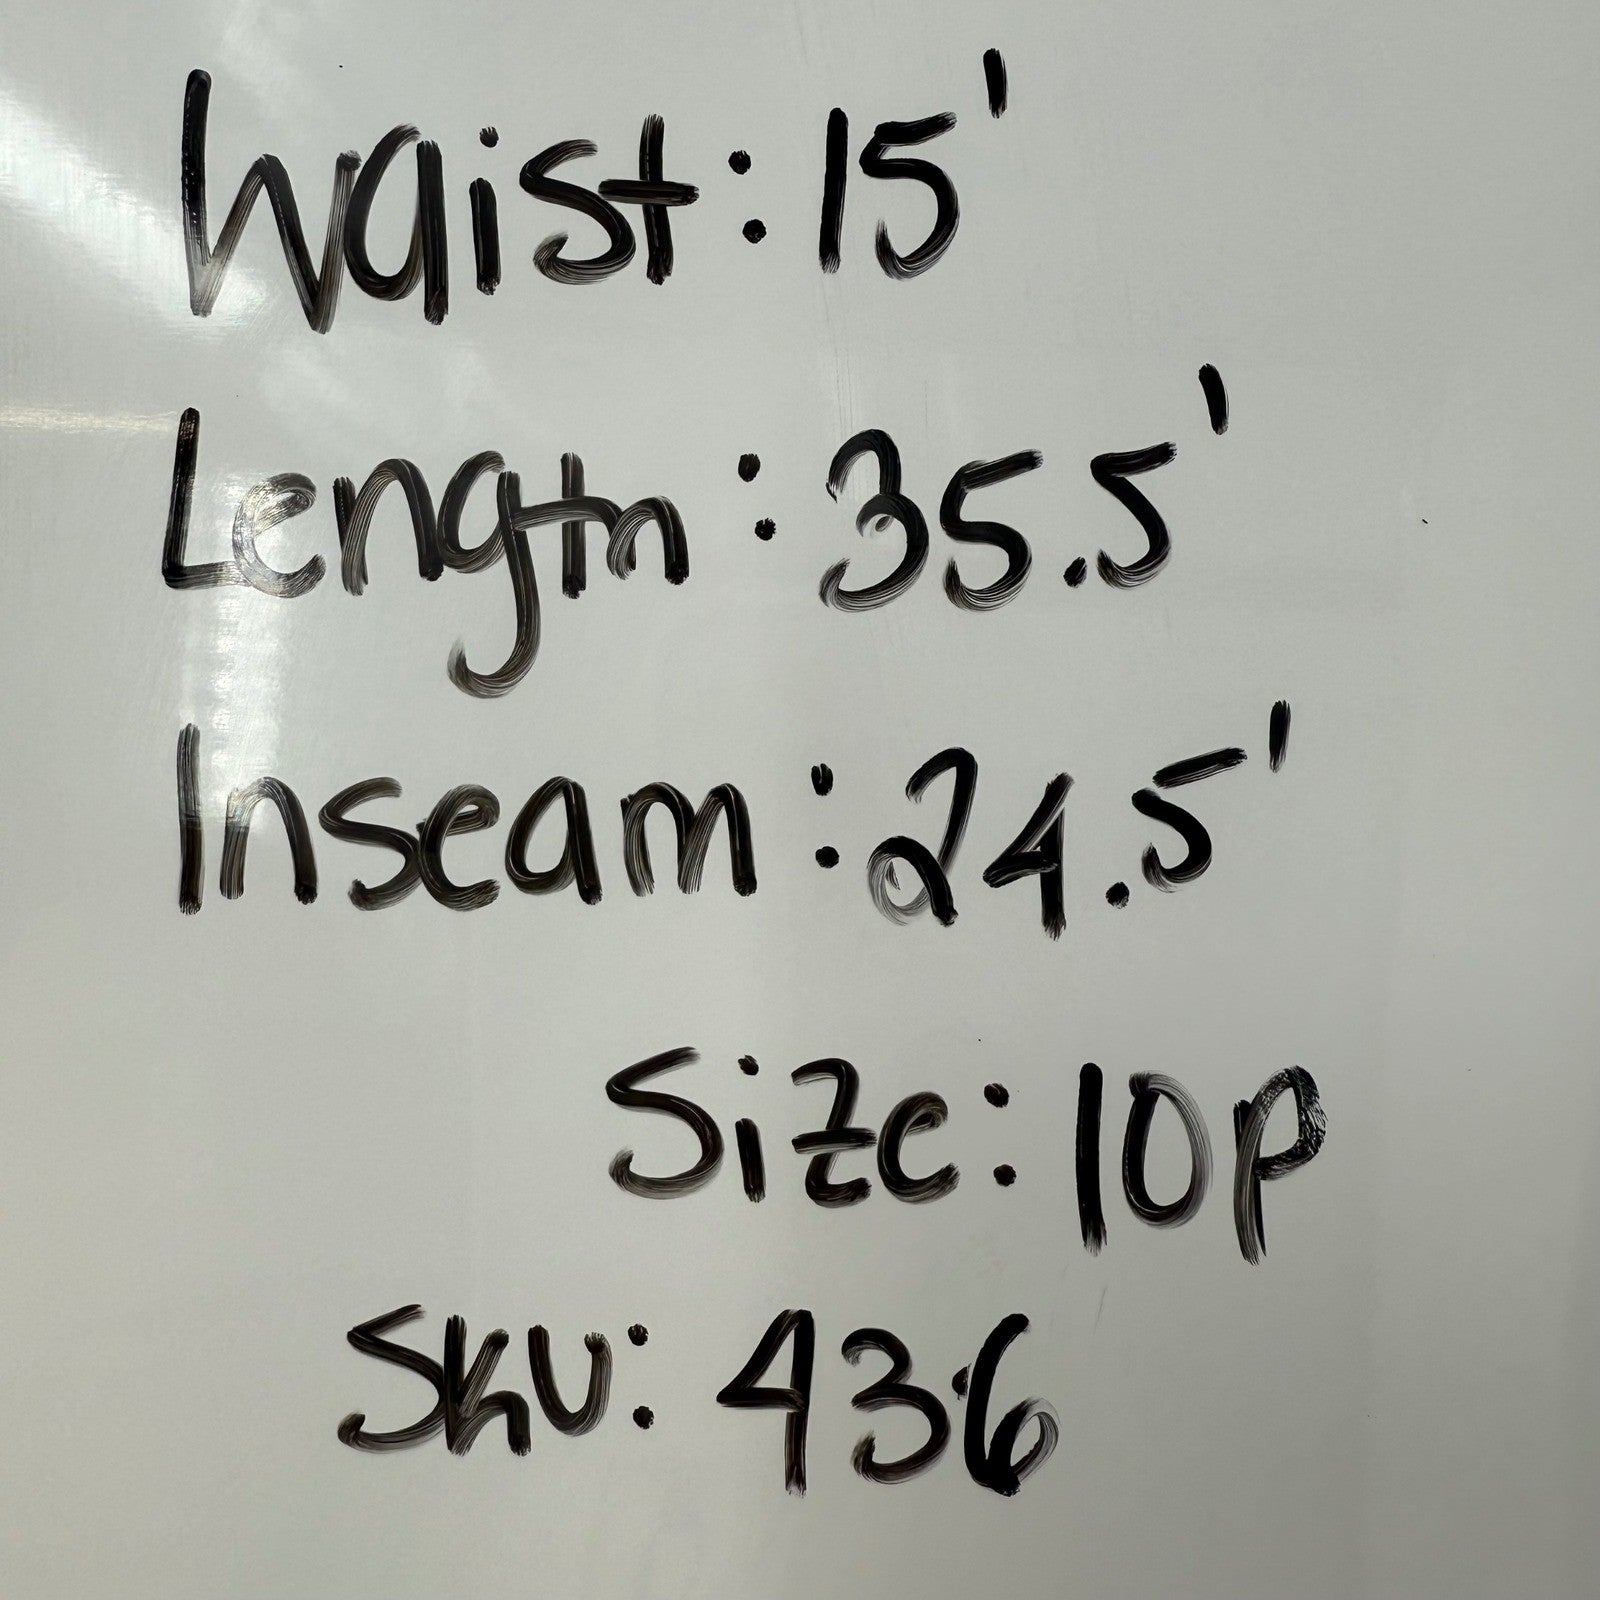 Waist: 15'
Length: 35.5'
Inseam: 24.5'
Size: 10P
Sku: 436